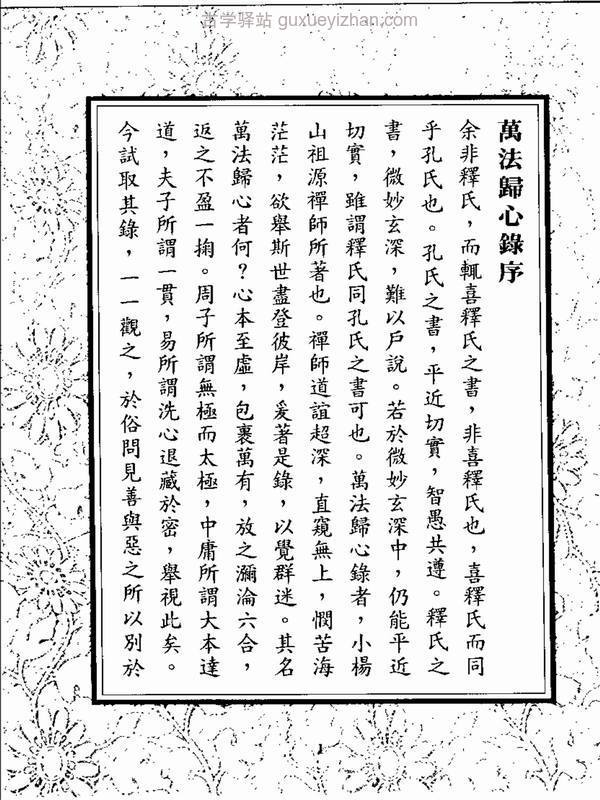 苦学驿站 guxueyizhan.com
萬法歸心錄序
余非釋氏，而輒喜釋氏之書，非喜釋氏也，喜釋氏而同
乎孔氏也。孔氏之書，平近切實，智愚共遵。釋氏之
書，微妙玄深，難以戶說。若於微妙玄深中，仍能平近
切實，雖謂釋氏同孔氏之書可也。萬法歸心錄者，小楊
山祖源禪師所著也。禪師道誼超深，直窺無上，憫苦海
茫茫，欲舉斯世盡登彼岸，爰著是錄，以覺群迷。其名
萬法歸心者何？心本至虛，包裹萬有，放之瀰淪六合，
返之不盈一掬。周子所謂無極而太極，中庸所謂大本達
道，夫子所謂一貫，易所謂洗心退藏於密，舉視此矣。
今試取其錄，一一觀之，於俗問見善與惡之所以別於
1